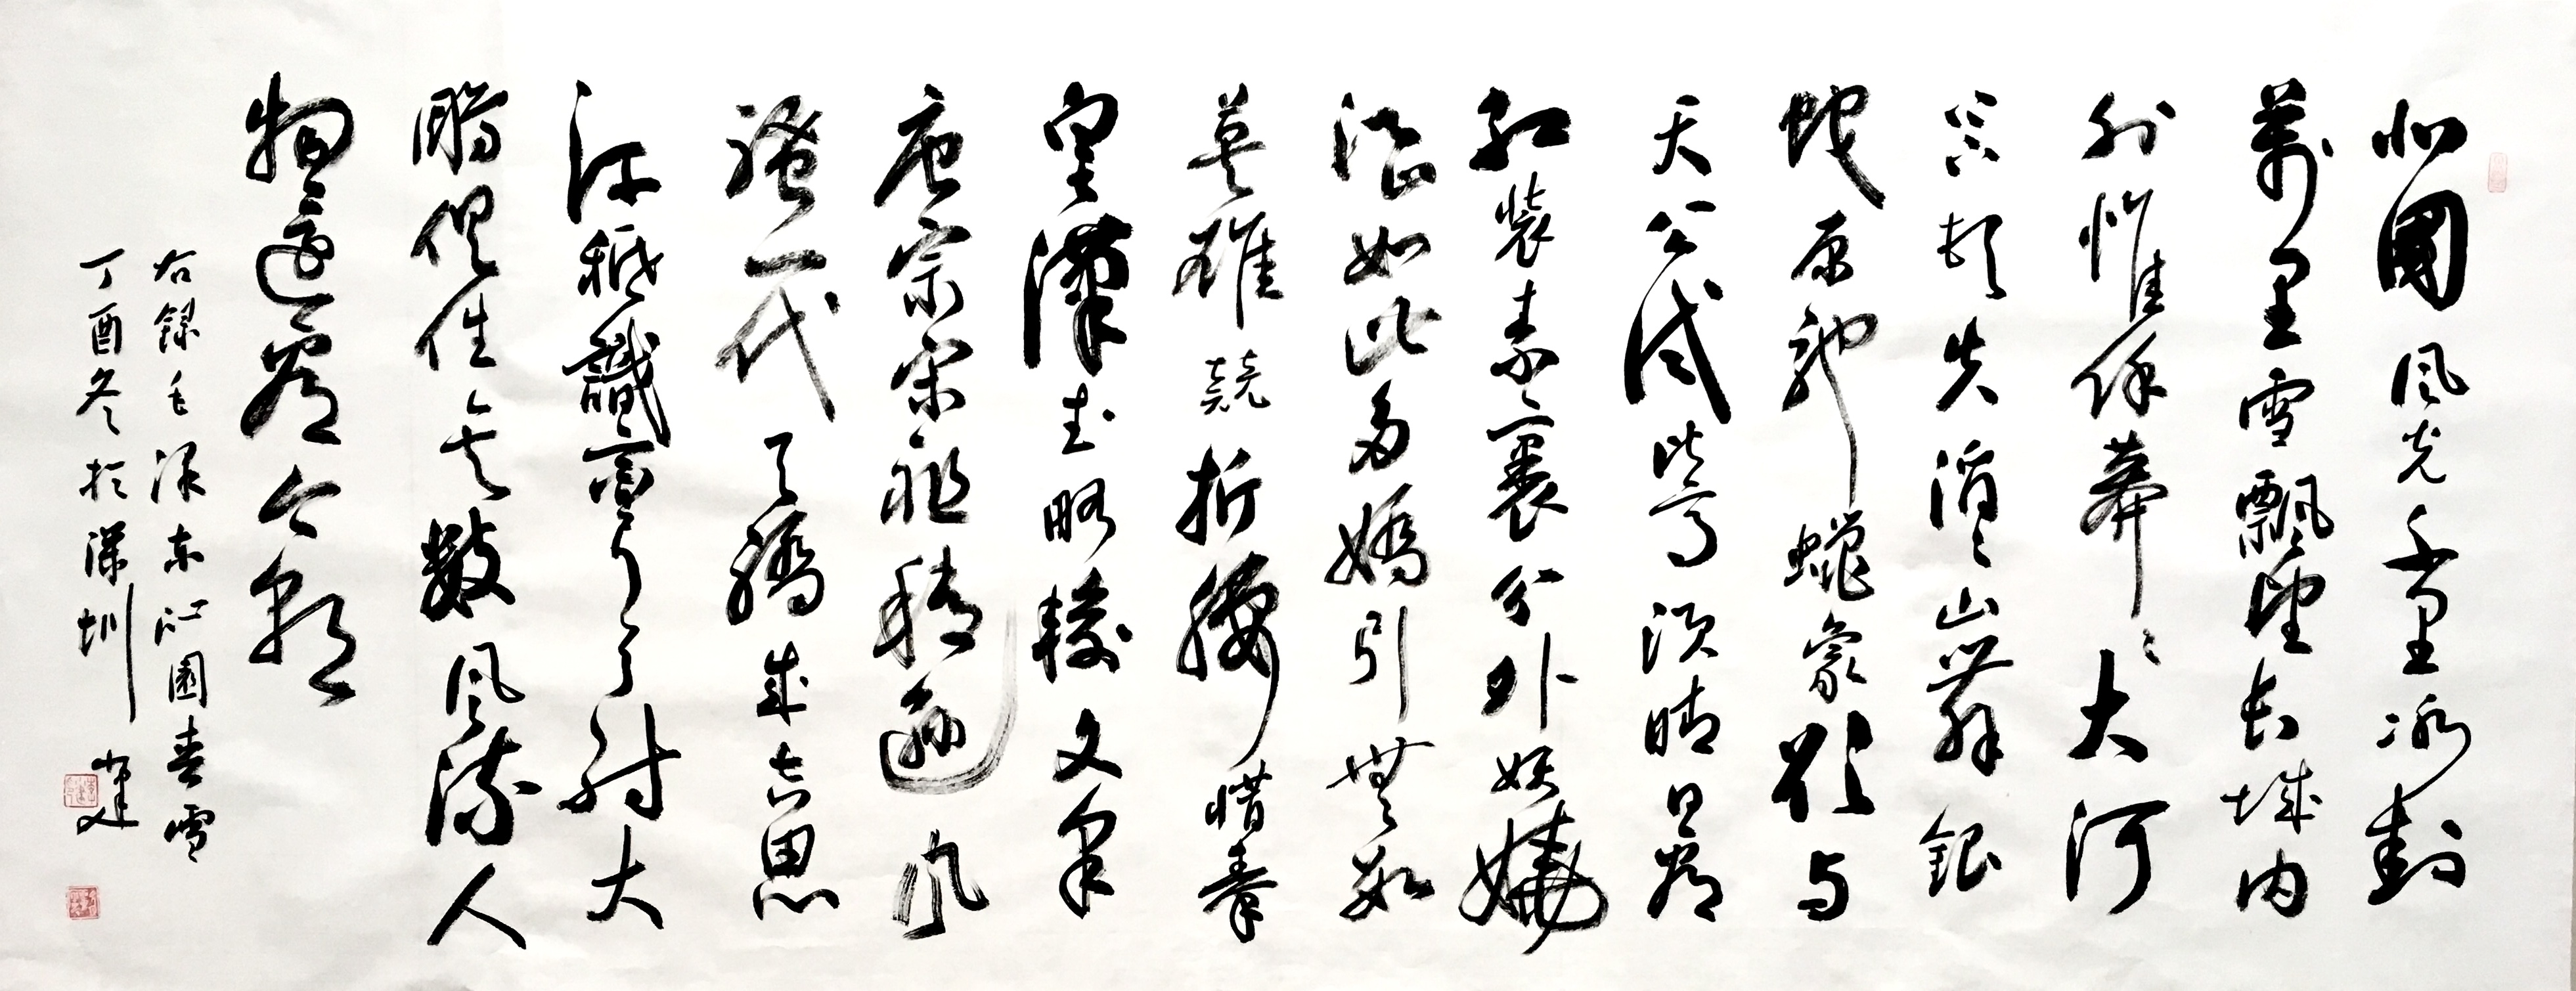 北國風光千里冰封
萬里雪飄望長城内
外惟餘莽〻大河
上下頓失滔〻山舞銀
蛇原馳蠟象欲与
天公試比高須晴日看
紅裝素裹分外妖嬈
江山如此多嬌引無數
英雄競折腰惜秦
皇漢武略輸文采
唐宗宋祖稍遜風
騷一代天驕成吉思
汗秖識彎弓射大
鵰俱往矣數風流人
物還看今朝
右錄毛澤東沁園春雪
丁酉冬於深圳 建